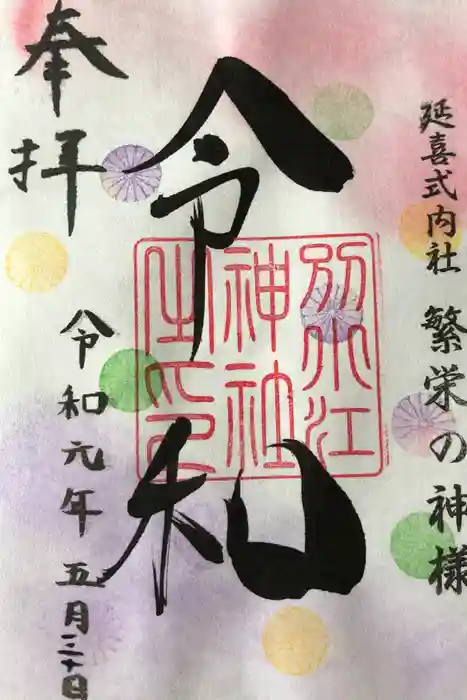 延喜式内社 繁栄の神様
令和
別小江
神社
之印
奉拝
令和元年 五月三十日